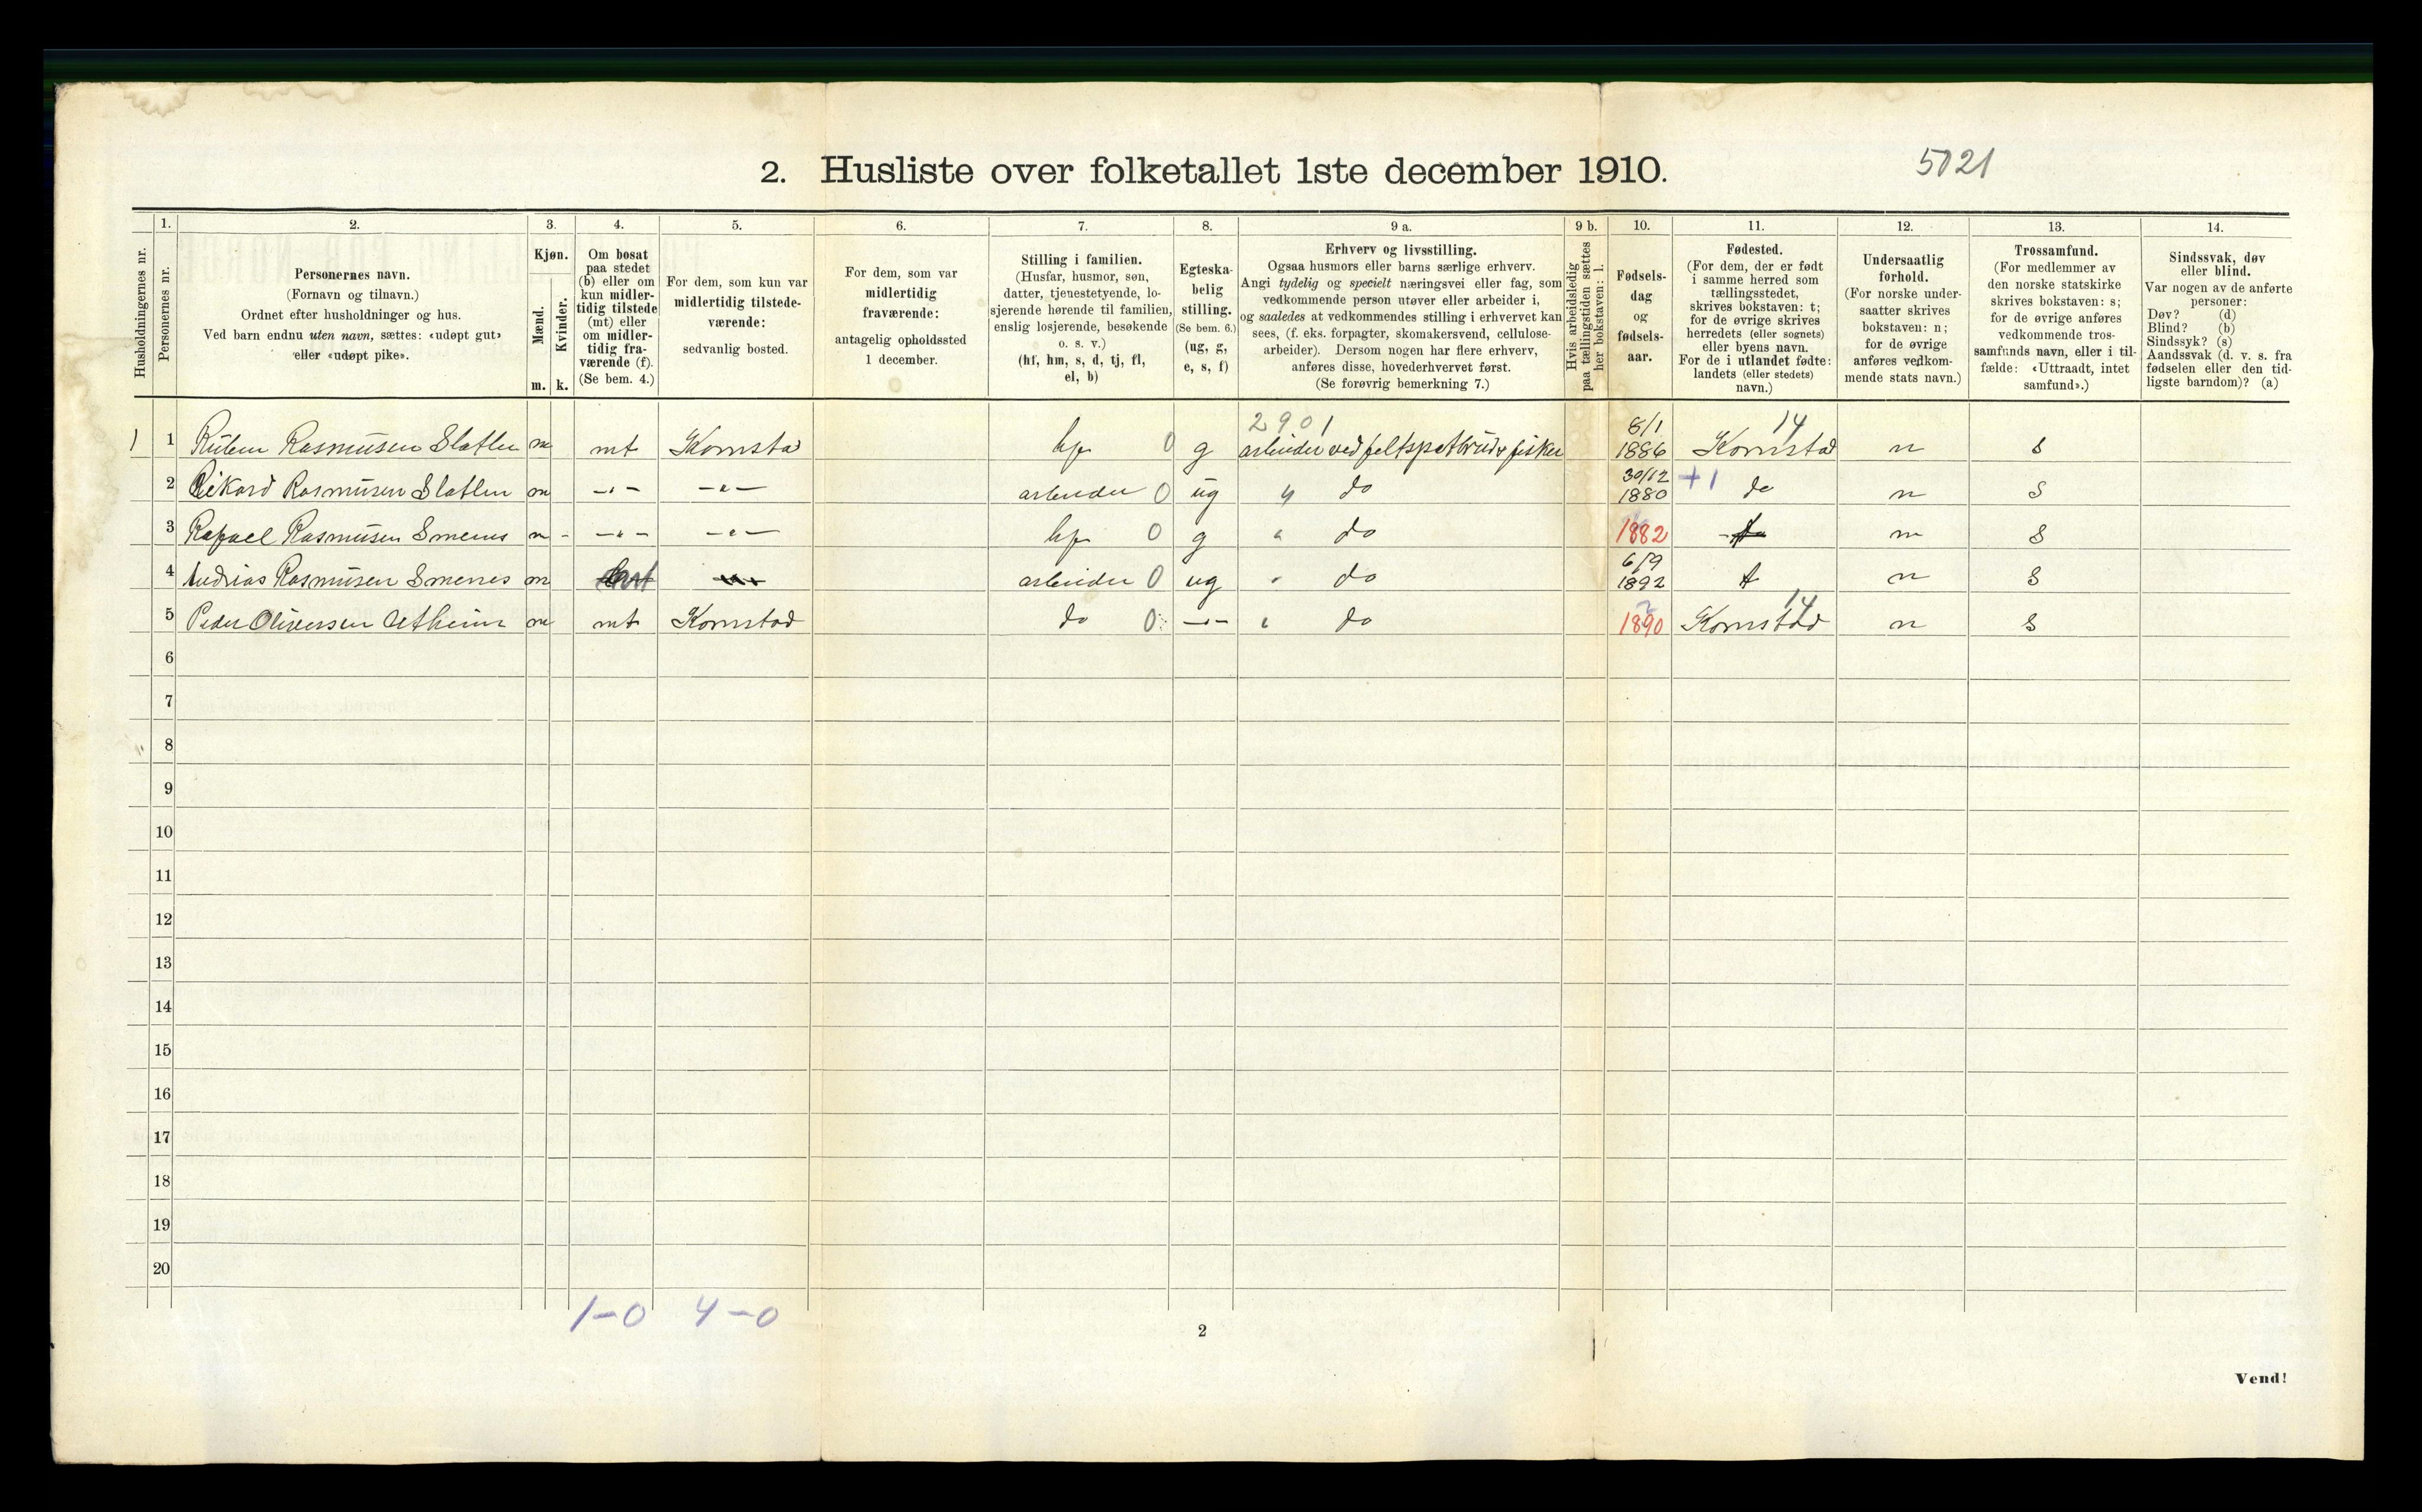 2. Husliste over folketallet 1ste december 1910.
5021
Husholdningernes nr.
1. Personernes nr.
2. Personernes navn. (Fornavn og tilnavn.) Ordnet efter husholdninger og hus. Ved barn endnu uten navn, sættes: «udøpt gut» eller «udøpt pike».
3. Kjøn. Mænd. m. Kvinder. k.
4. Om bosat paa stedet (b) eller om kun midlertidig tilstede (mt) eller om midlertidig fraværende (f). (Se bem. 4.)
5. For dem, som kun var midlertidig tilstedeværende: sedvanlig bosted.
6. For dem, som var midlertidig fraværende: antagelig opholdssted 1 december.
7. Stilling i familien. (Husfar, husmor, søn, datter, tjenestetyende, losjerende hørende til familien, enslig losjerende, besøkende o. s. v.) (hf, hm, s, d, tj, fl, el, b)
8. Egteskabelig stilling. (Se bem. 6.) (ug, g, e, s, f)
9 a. Erhverv og livsstilling. Ogsaa husmors eller barns særlige erhverv. Angi tydelig og specielt næringsvei eller fag, som vedkommende person utøver eller arbeider i, og saaledes at vedkommendes stilling i erhvervet kan sees, (f. eks. forpagter, skomakersvend, cellulosearbeider). Dersom nogen har flere erhverv, anføres disse, hovederhvervet først. (Se forøvrig bemerkning 7.)
9 b. Hvis arbeidsledig paa tællingstiden sættes her bokstaven: l.
10. Fødselsdag og fødselsaar.
11. Fødested. (For dem, der er født i samme herred som tællingsstedet, skrives bokstaven: t; for de øvrige skrives herredets (eller sognets) eller byens navn. For de i utlandet fødte: landets (eller stedets) navn.)
12. Undersaatlig forhold. (For norske undersaatter skrives bokstaven: n; for de øvrige anføres vedkommende stats navn.)
13. Trossamfund. (For medlemmer av den norske statskirke skrives bokstaven: s; for de øvrige anføres vedkommende trossamfunds navn, eller i tilfælde: «Uttraadt, intet samfund».)
14. Sindssvak, døv eller blind. Var nogen av de anførte personer: Døv? (d) Blind? (b) Sindssyk? (s) Aandssvak (d. v. s. fra fødselen eller den tidligste barndom)? (a)
2901 8/1 14
1 1 Ruben Rasmusen Slatlen m mt Kornsta hf 0 g arbeider ved feltspatbrud & fisker 1886 Kornstad n S
30/12
2 Rikard Rasmusen Slatlen m -"- -"- arbeider 0 ug " do 1880 +1 do n S
3 Rafael Rasmusen Smenes m - -"- -"- hf 0 g " do 1882 n S
6/9
4 Andreas Rasmusen Smenes m arbeider 0 ug " do 1892 t n S
14
5 Peder Oliversen Utheim m mt Kornstad do 0 -"- " do 1890 Kornstad n S
6
7
8
9
10
11
12
13
14
15
16
17
18
19
20
1-0 4-0
2
Vend!